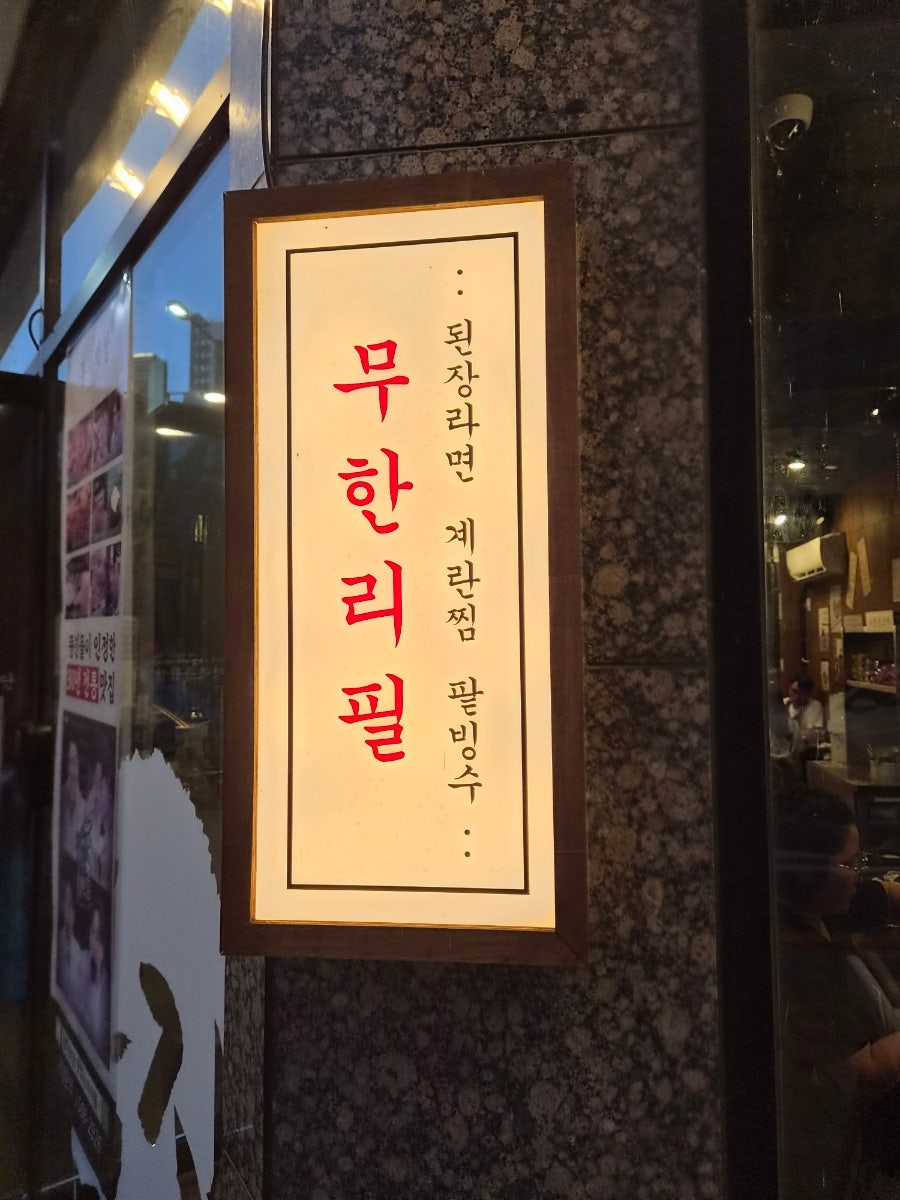 : 된장라면 계란찜 팥빙수 :
무한리필
인정한
전통맛집